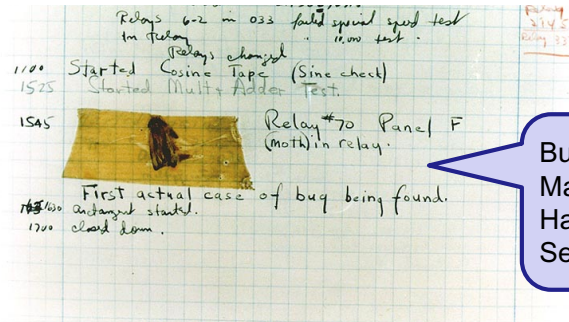 Relays 6-2 in 033 failed special speed test
in relay " 10,000 test.
Relays changed
1100 Started Cosine Tape (Sine check)
1525 Started Mult + Adder Test.
1545 Relay #70 Panel F
(moth) in relay.
First actual case of bug being found.
1630 antangent started.
1700 closed down.
Relay
2145
Relay 33
Bu
Ma
Ha
Se